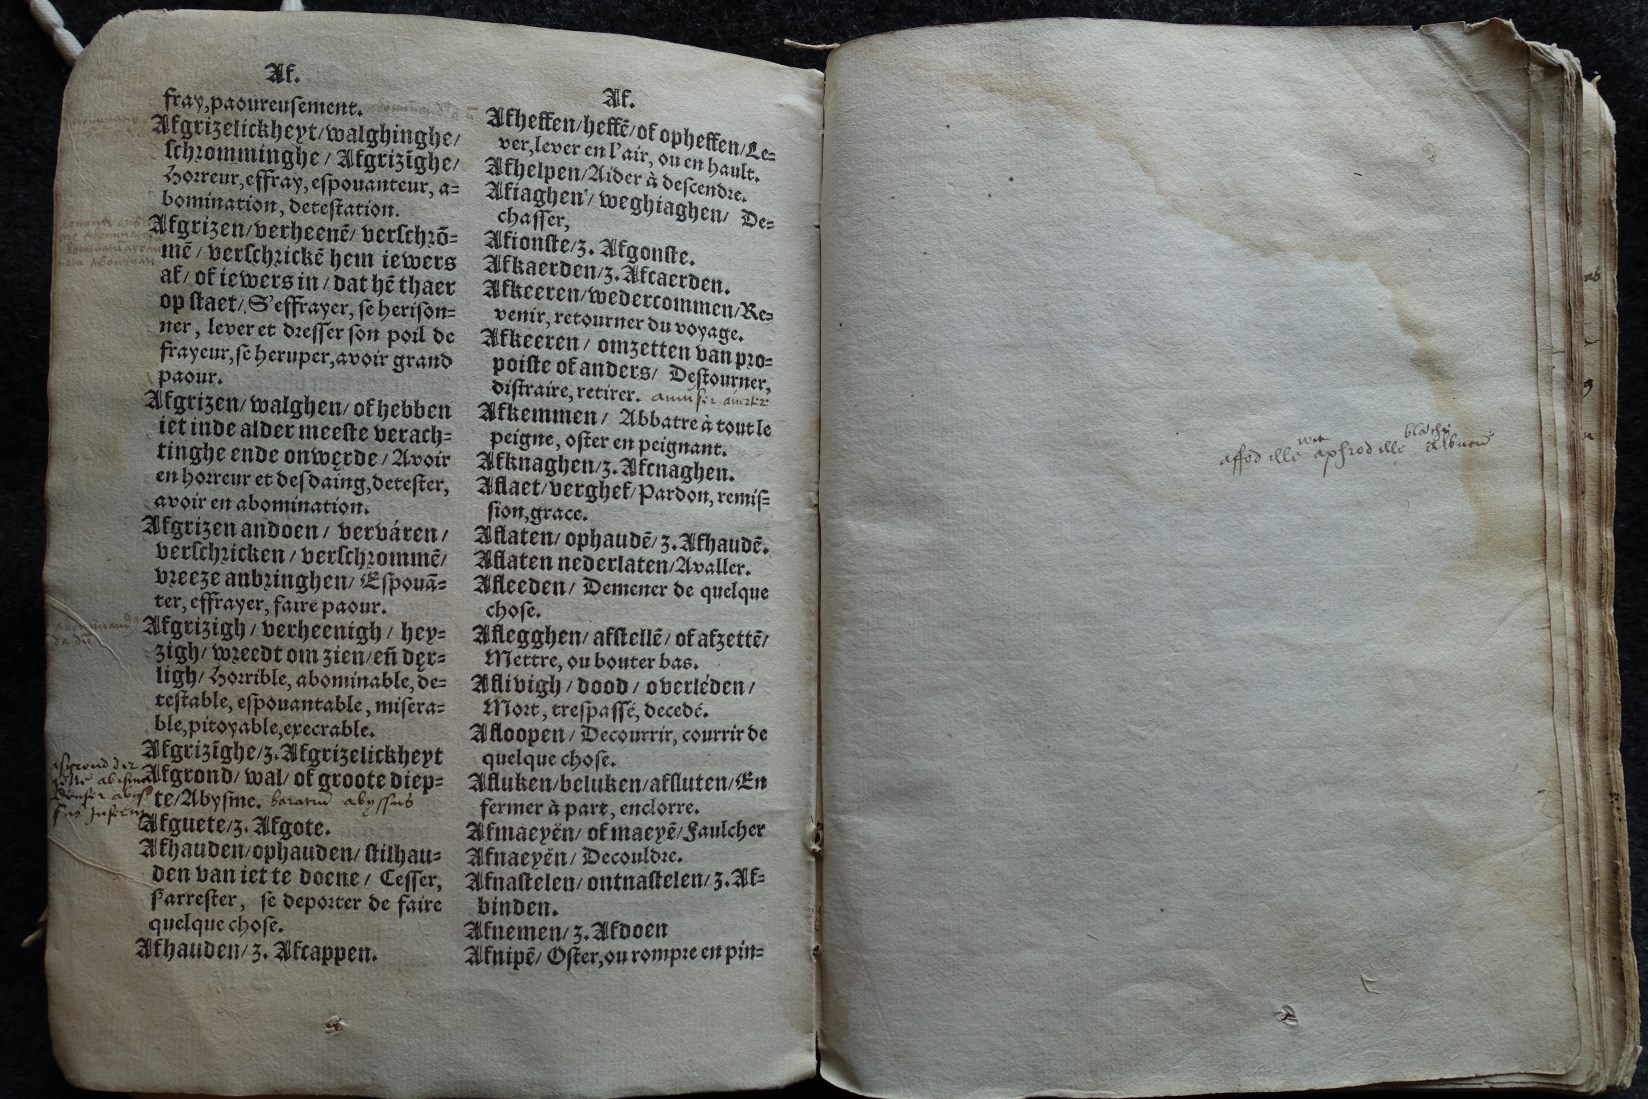 Af.
fray,paoureusement.
Afgrizelickheyt/walghinghe/
schromminghe / Afgrizīghe/
Horreur,effray, espouanteur, a=
bomination, detestation.
Afgrizen/verheenē/ verschrō=
mē / verschrickē hem iewers
af/ of iewers in / dat hē thaer
op staet/ S'effrayer, se herison=
ner, lever et dresser son poil de
frayeur,se heruper,avoir grand
paour.
Afgrizen/ walghen/ of hebben
iet inde alder meeste verach=
tinghe ende onwęrde/ Avoir
en horreur et desdaing,detester,
avoir en abomination.
Afgrizen andoen / verváren /
verschricken / verschrommē/
vreeze anbringhen/ Espouā=
ter, effrayer, faire paour.
Afgrizigh / verheenigh / hey=
zigh/ wreedt om zien/ en̄ dęr=
ligh/ Horrible, abominable, de=
testable, espouantable, misera=
ble,pitoyable,execrable.
Afgrizīghe/z. Afgrizelickheyt
Afgrond/ wal/ of groote diep=
te/Abysme. abyssus
Afguete/z. Afgote.
Afhauden/ophauden/ stilhau=
den van iet te doene / Cesser,
s'arrester, se deporter de faire
quelque chose.
Afhauden/ z. Afcappen.
Af.
Afheffen/heffē/of opheffen/Le=
ver,lever en l'air, ou en hault.
Afhelpen/Aider à descendre.
Afiaghen/ weghiaghen/ De=
chasser,
Afionste/z. Afgonste.
Afkaerden/z. Afcaerden.
Afkeeren/wedercommen/Re=
venir, retourner du voyage.
Afkeeren / omzetten van pro=
poiste of anders/ Destourner,
distraire, retirer.
Afkemmen/ Abbatre à tout le
peigne, oster en peignant.
Afknaghen/z. Afcnaghen.
Aflaet/verghef/Pardon, remis=
sion,grace.
Aflaten/ ophaudē/z. Afhaudē.
Aflaten nederlaten/Avaller.
Afleeden/ Demener de quelque
chose.
Aflegghen/ afstellē/ of afzettē/
Mettre, ou bouter bas.
Aflivigh / dood / overléden /
Mort, trespassé, decedé.
Afloopen/ Decourrir, courrir de
quelque chose.
Afluken/beluken/afsluten/En
fermer à part, enclorre.
Afmaeyēn/ of maeyē/Faulcher
Afnaeyēn/ Decouldre.
Afnastelen/ ontnastelen/z. Af=
binden.
Afnemen/ z. Afdoen
Afnipē/ Oster,ou rompre en pin=